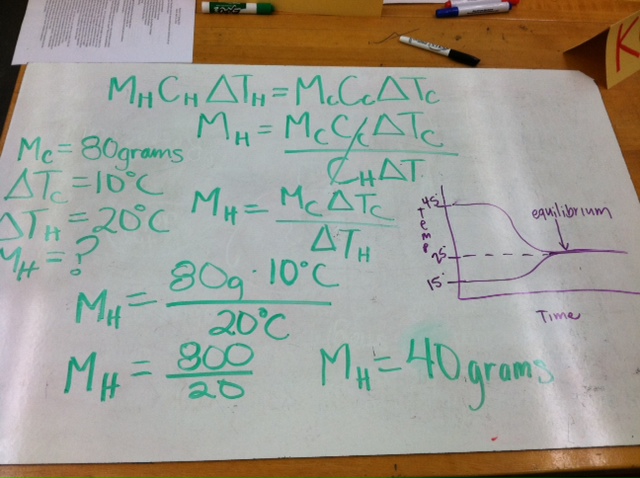 M_H C_H ΔT_H = M_C C_C ΔT_C
M_H = M_C C_C ΔT_C / C_H ΔT
M_C = 80 grams
ΔT_C = 10°C
ΔT_H = 20°C
M_H = ?
M_H = M_C ΔT_C / ΔT_H
M_H = 80g · 10°C / 20°C
M_H = 800 / 20
M_H = 40 grams
45
Temp
equilibrium
25
15
Time